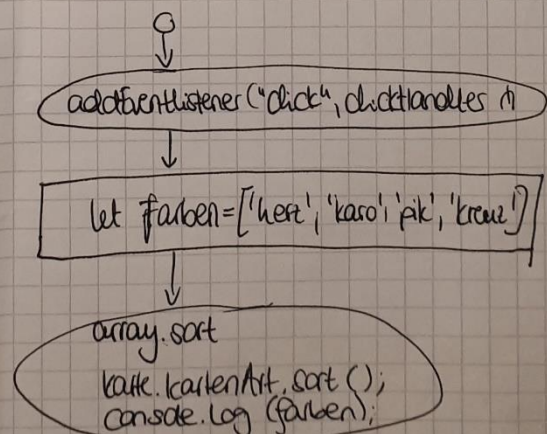 addEventListener ("click", clickHandler
let farben=['herz', 'karo', 'pik', 'kreuz']
array.sort
karte.kartenArt.sort ();
console.log (farben);